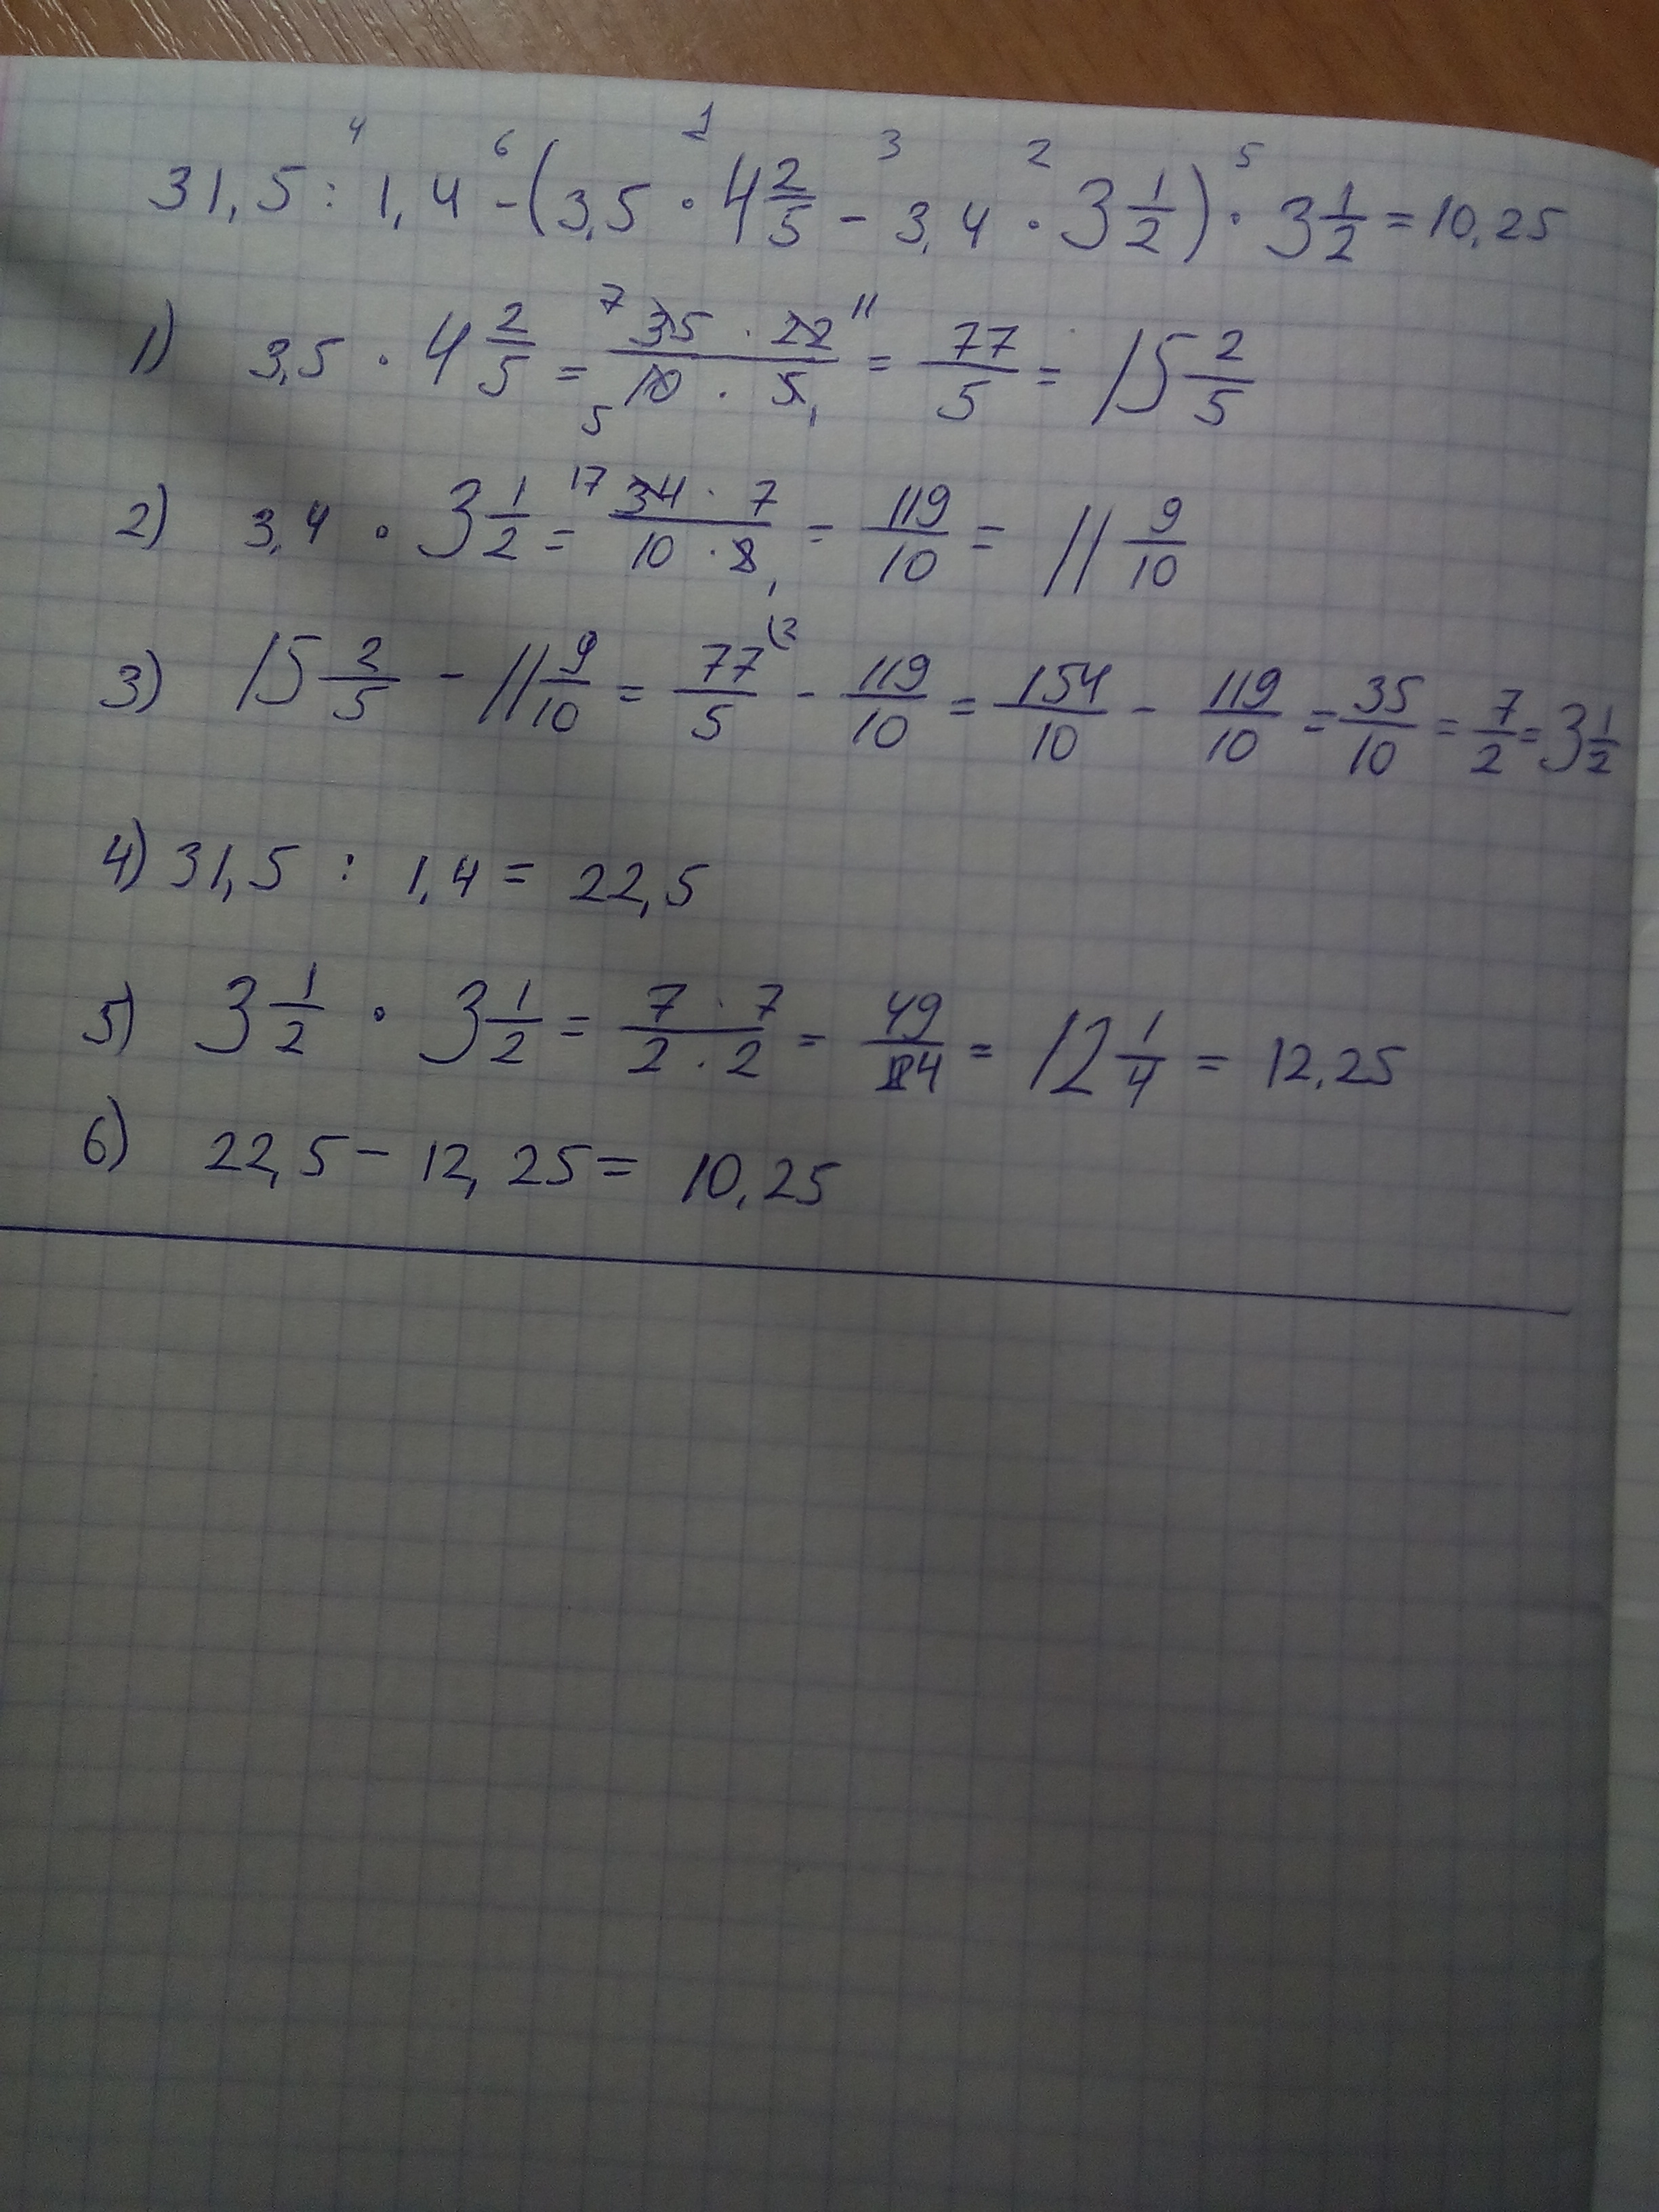 4 6 1 3 2 5
31,5 : 1,4 - (3,5 · 4 2/5 - 3,4 · 3 1/2) · 3 1/2 = 10,25
1) 3,5 · 4 2/5 = 7 35 · 22 11 / 5 10 · 5 1 = 77/5 = 15 2/5
2) 3,4 · 3 1/2 = 17 34 · 7 / 10 · 2 1 = 119/10 = 11 9/10
3) 15 2/5 - 11 9/10 = 77/5 (2 - 119/10 = 154/10 - 119/10 = 35/10 = 7/2 = 3 1/2
4) 31,5 : 1,4 = 22,5
5) 3 1/2 · 3 1/2 = 7 · 7 / 2 · 2 = 49/4 = 12 1/4 = 12,25
6) 22,5 - 12,25 = 10,25